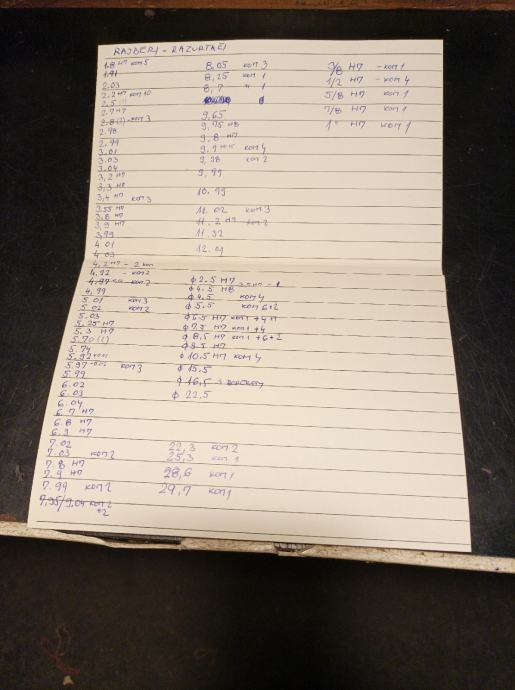 RAJBERI - RAZVRTAČI
1.8 H7 KOM 5
1.91
2.03
2.2 H7 KOM 10
2.5
2.7 H7
2.8 KOM 3
2.98
2.99
3.01
3.03
3.04
3,2 H7
3,3 H8
3,4 H7 KOM 3
3.55 H7
3.8 H7
3,9 H7
3,99
4.01
4.03
4,2 H7 - 2 KOM
4,92 - KOM 2
4,97 KOM 2
4,99
5.01 KOM 3
5.02 KOM 2
5.03
5.25 H7
5.3 H7
5.70
5.74
5.92
5.97 KOM 3
5.99
6.02
6.03
6.04
6.7 H7
6.8 H7
6.9 H7
7.02
7.03 KOM 2
7.8 H7
7.9 H7
7.99 KOM 2
7,95/9,04 KOM 2
+2
8,05 KOM 3
8,25 KOM 1
8,7 " 1
9,65
9,75 H8
9,8 H7
9,9 KOM 4
9,98 KOM 2
9,99
10.99
11.02 KOM 3
11.2 H7 KOM 2
11,32
12.01
φ 2.5 H7
φ 4.5 H8
φ 4.5 KOM 4
φ 5.5 KOM 6+2
φ 6.5 H7 KOM 1 +4
φ 7.5 H7 KOM 1 +4
φ 8,5 H7 KOM 1 +6+2
φ 9.5 H7
φ 10.5 H7 KOM 4
φ 15.5
φ 16,5
φ 22,5
22,3 KOM 2
25,3 KOM 1
28,6 KOM 1
29,7 KOM 1
3/8 H7 - KOM 1
1/2 H7 - KOM 4
5/8 H7 KOM 1
7/8 H7 KOM 1
1" H7 KOM 1